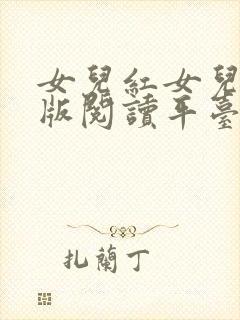 女兒紅女兒
版閱讀平臺
扎蘭丁